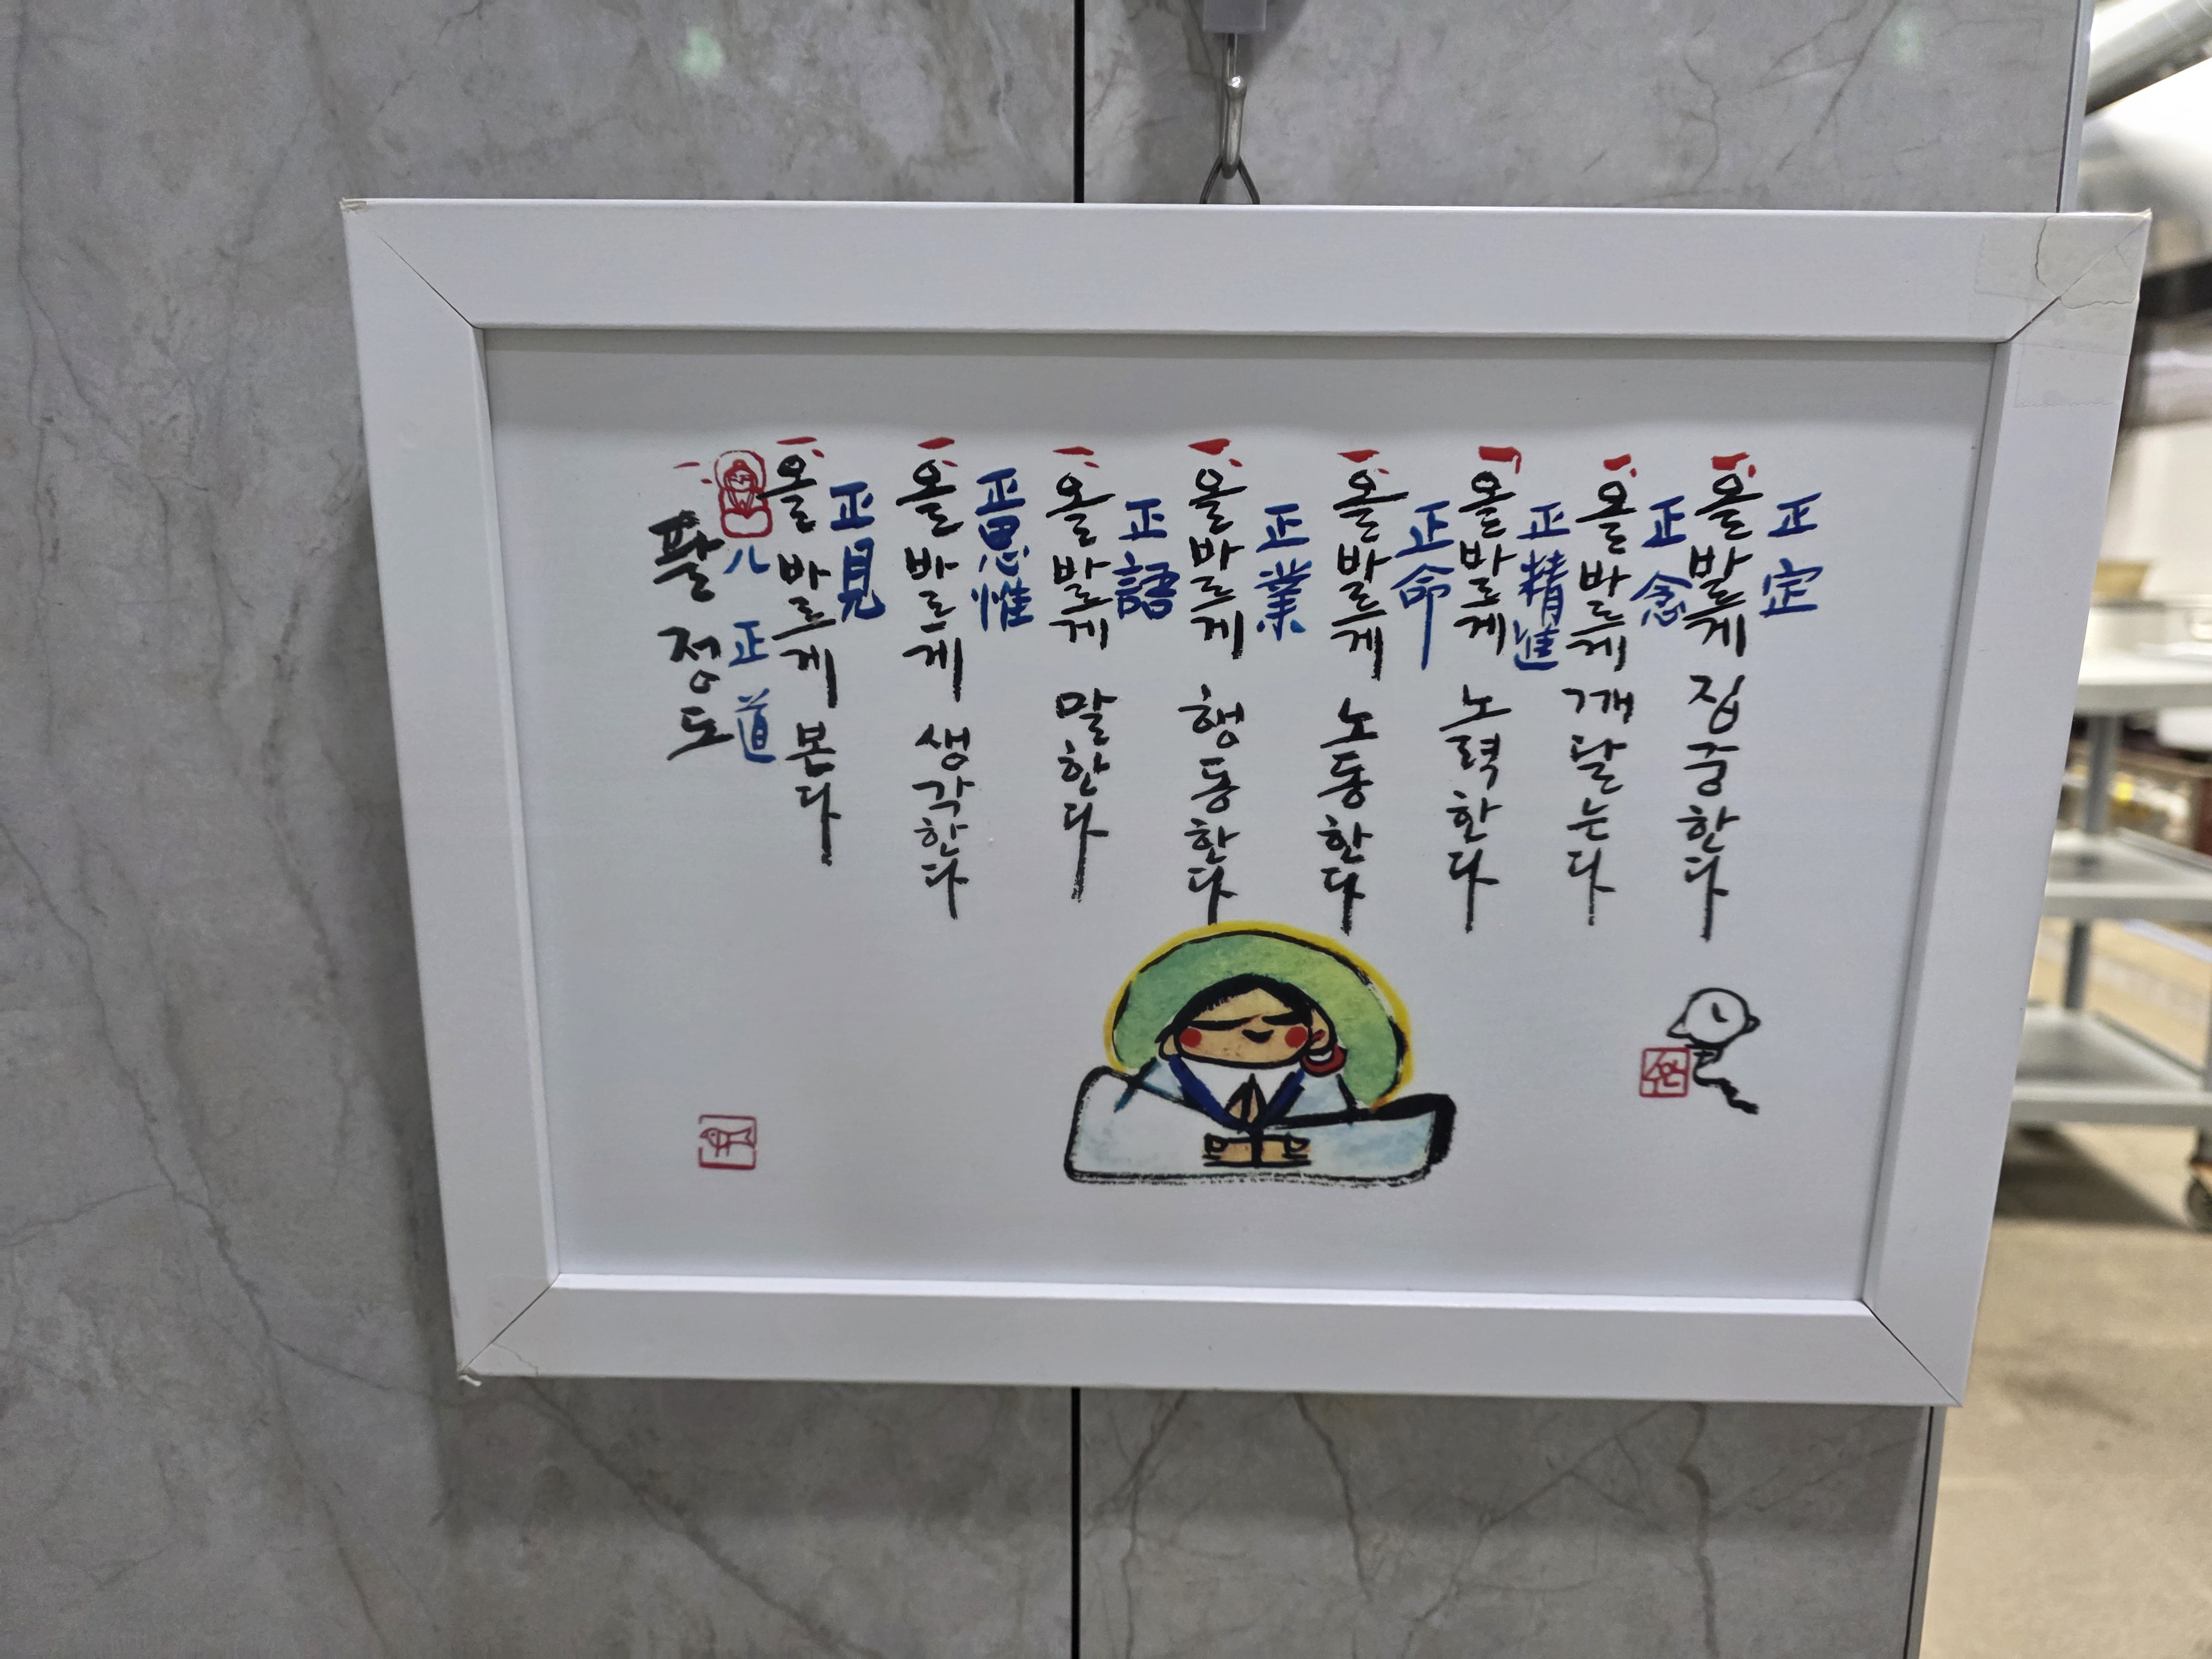 팔정도
八正道
올바르게 본다
正見
올바르게 생각한다
正思惟
올바르게 말한다
正語
올바르게 행동한다
正業
올바르게 노동한다
正命
올바르게 노력한다
正精進
올바르게 깨달는다
正念
올바르게 집중한다
正定